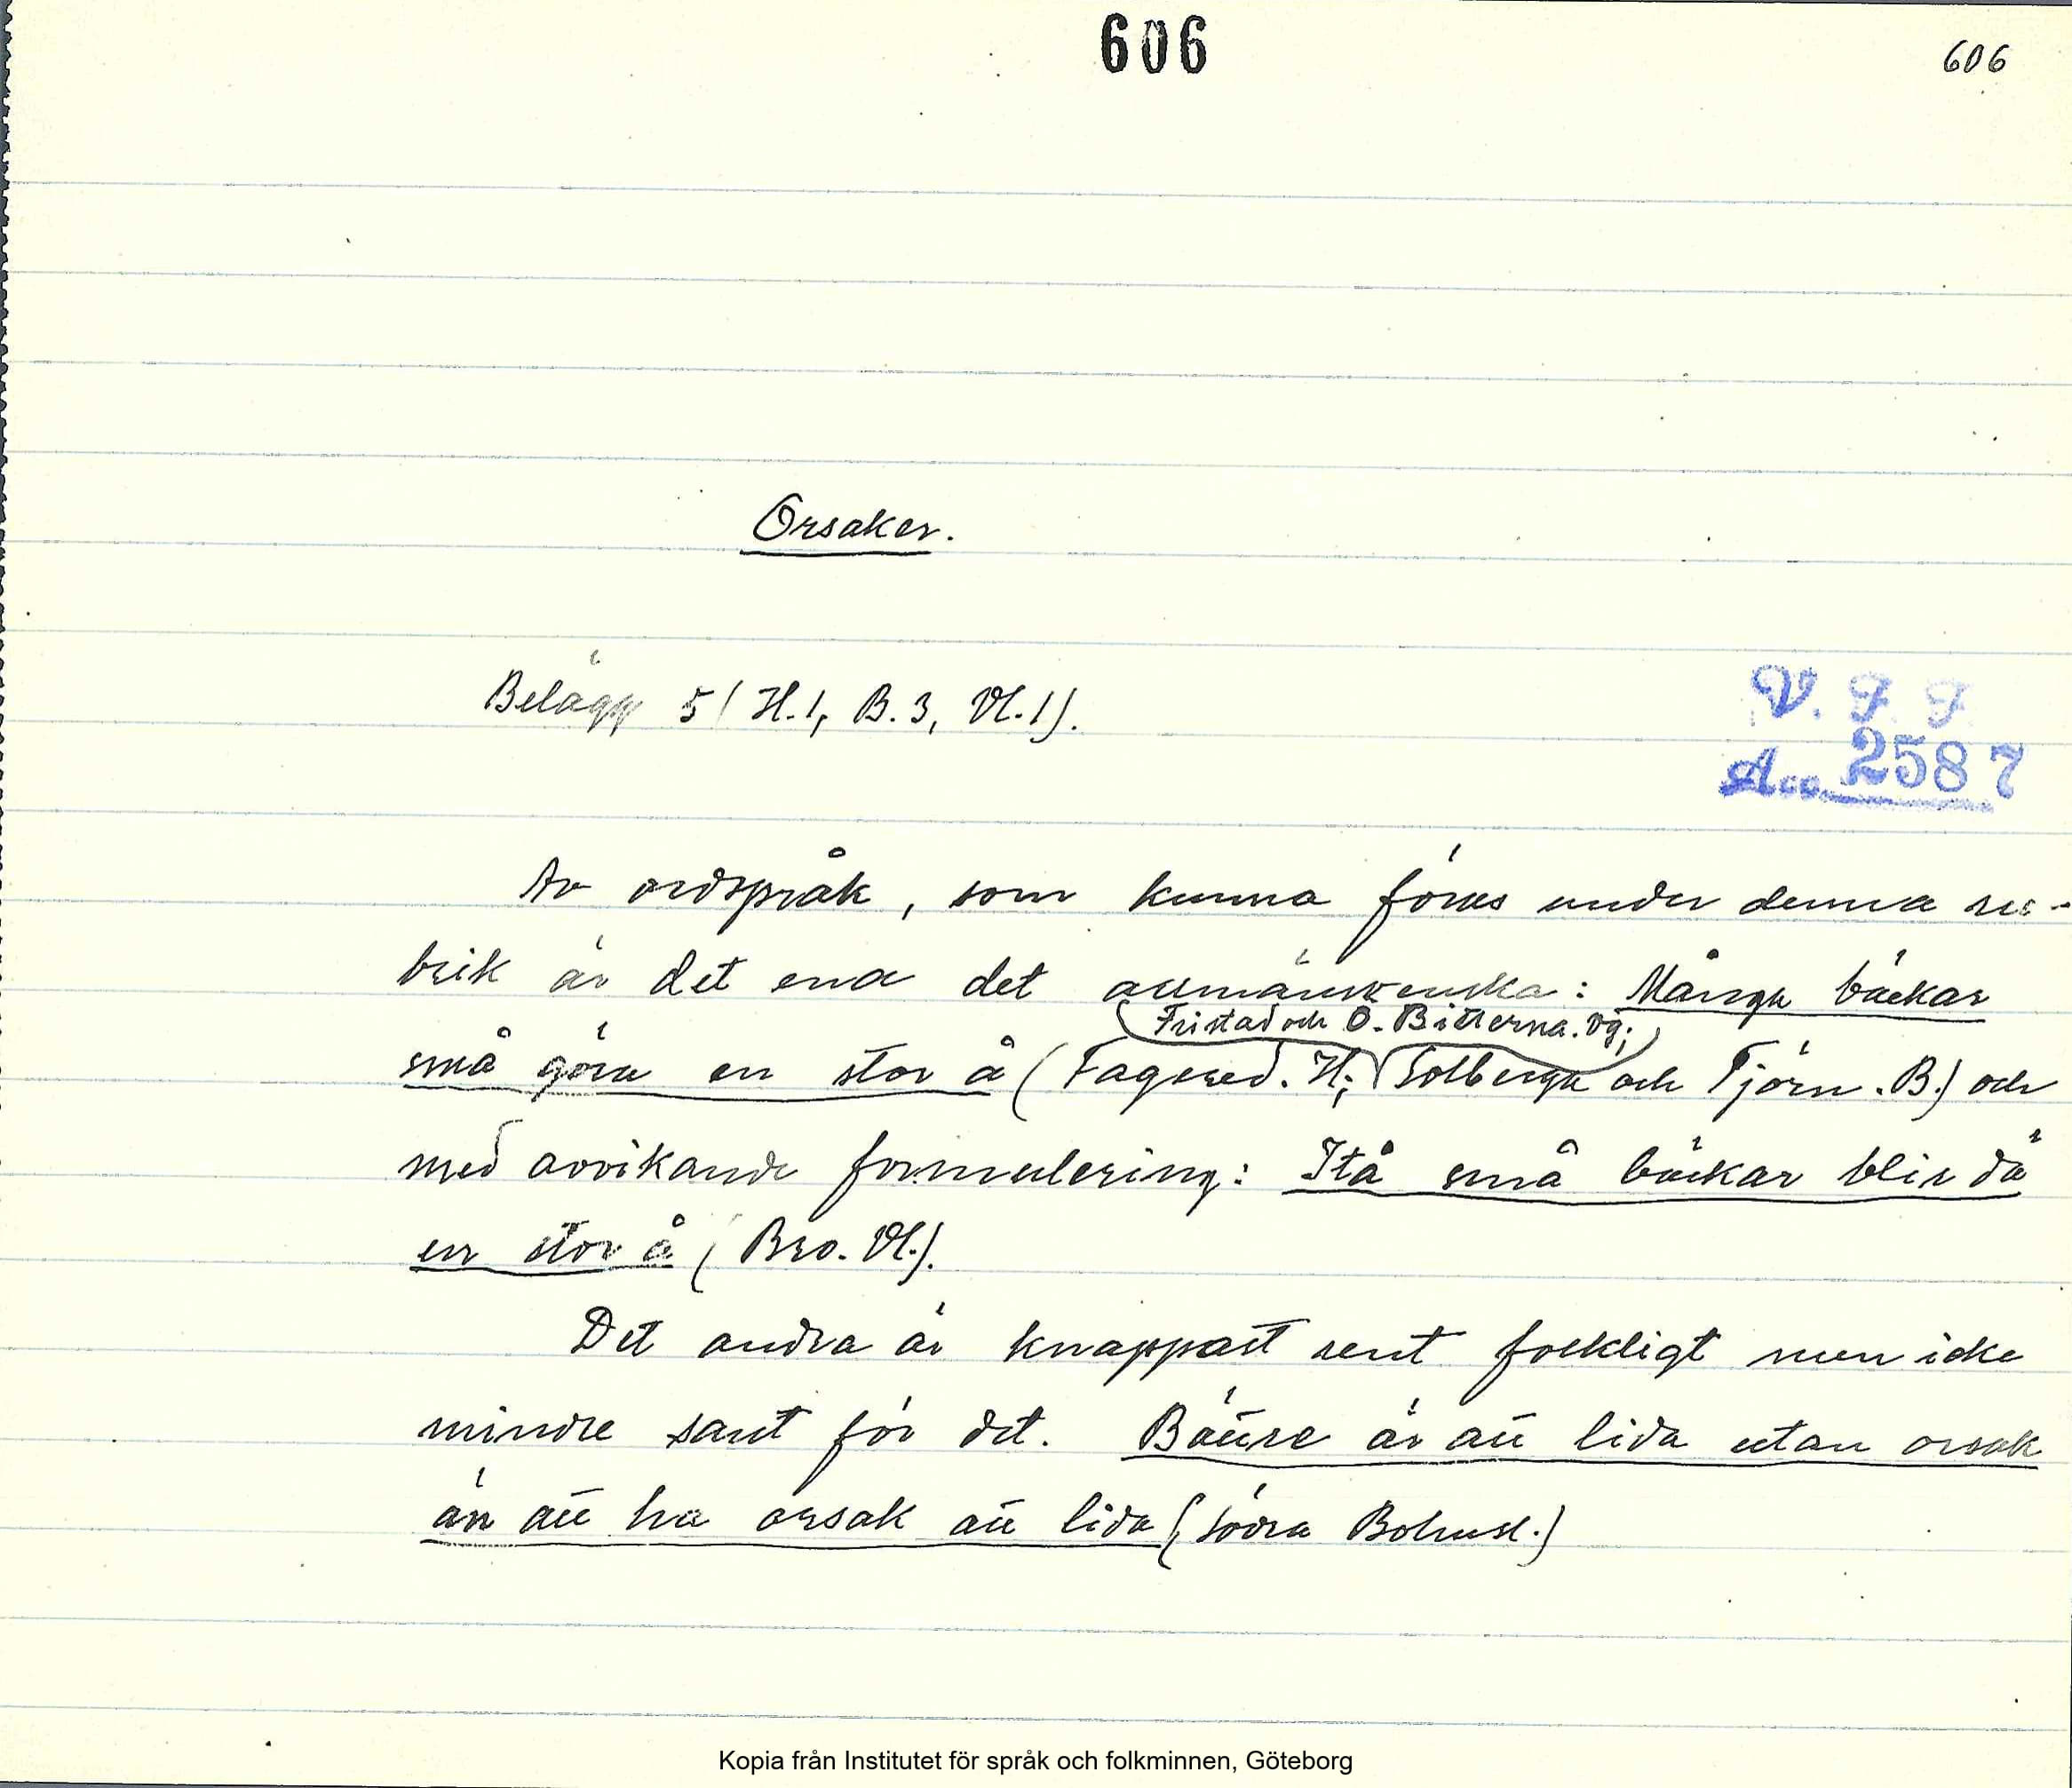 606
606
Orsaker.
Belägg 5 (H.1, B.3, Vl.1).
V. F. F.
Acc. 2587
Av ordspråk, som kunna föras under denna ru-
brik är det ena det allmänsvenska: Många bäckar
Fristad och Ö. Bitterna. Vg;
små göra en stor å (Fagered. H; Solberga och Tjörn. B.) och
med avvikande formulering: Itå små bäckar blir dä
en stor å (Bro. Vl.).
Det andra är knappast rent folkligt men icke
mindre sant för det. Bättre är att lida utan orsak
än att ha orsak att lida (södra Bohusl.)
Kopia från Institutet för språk och folkminnen, Göteborg